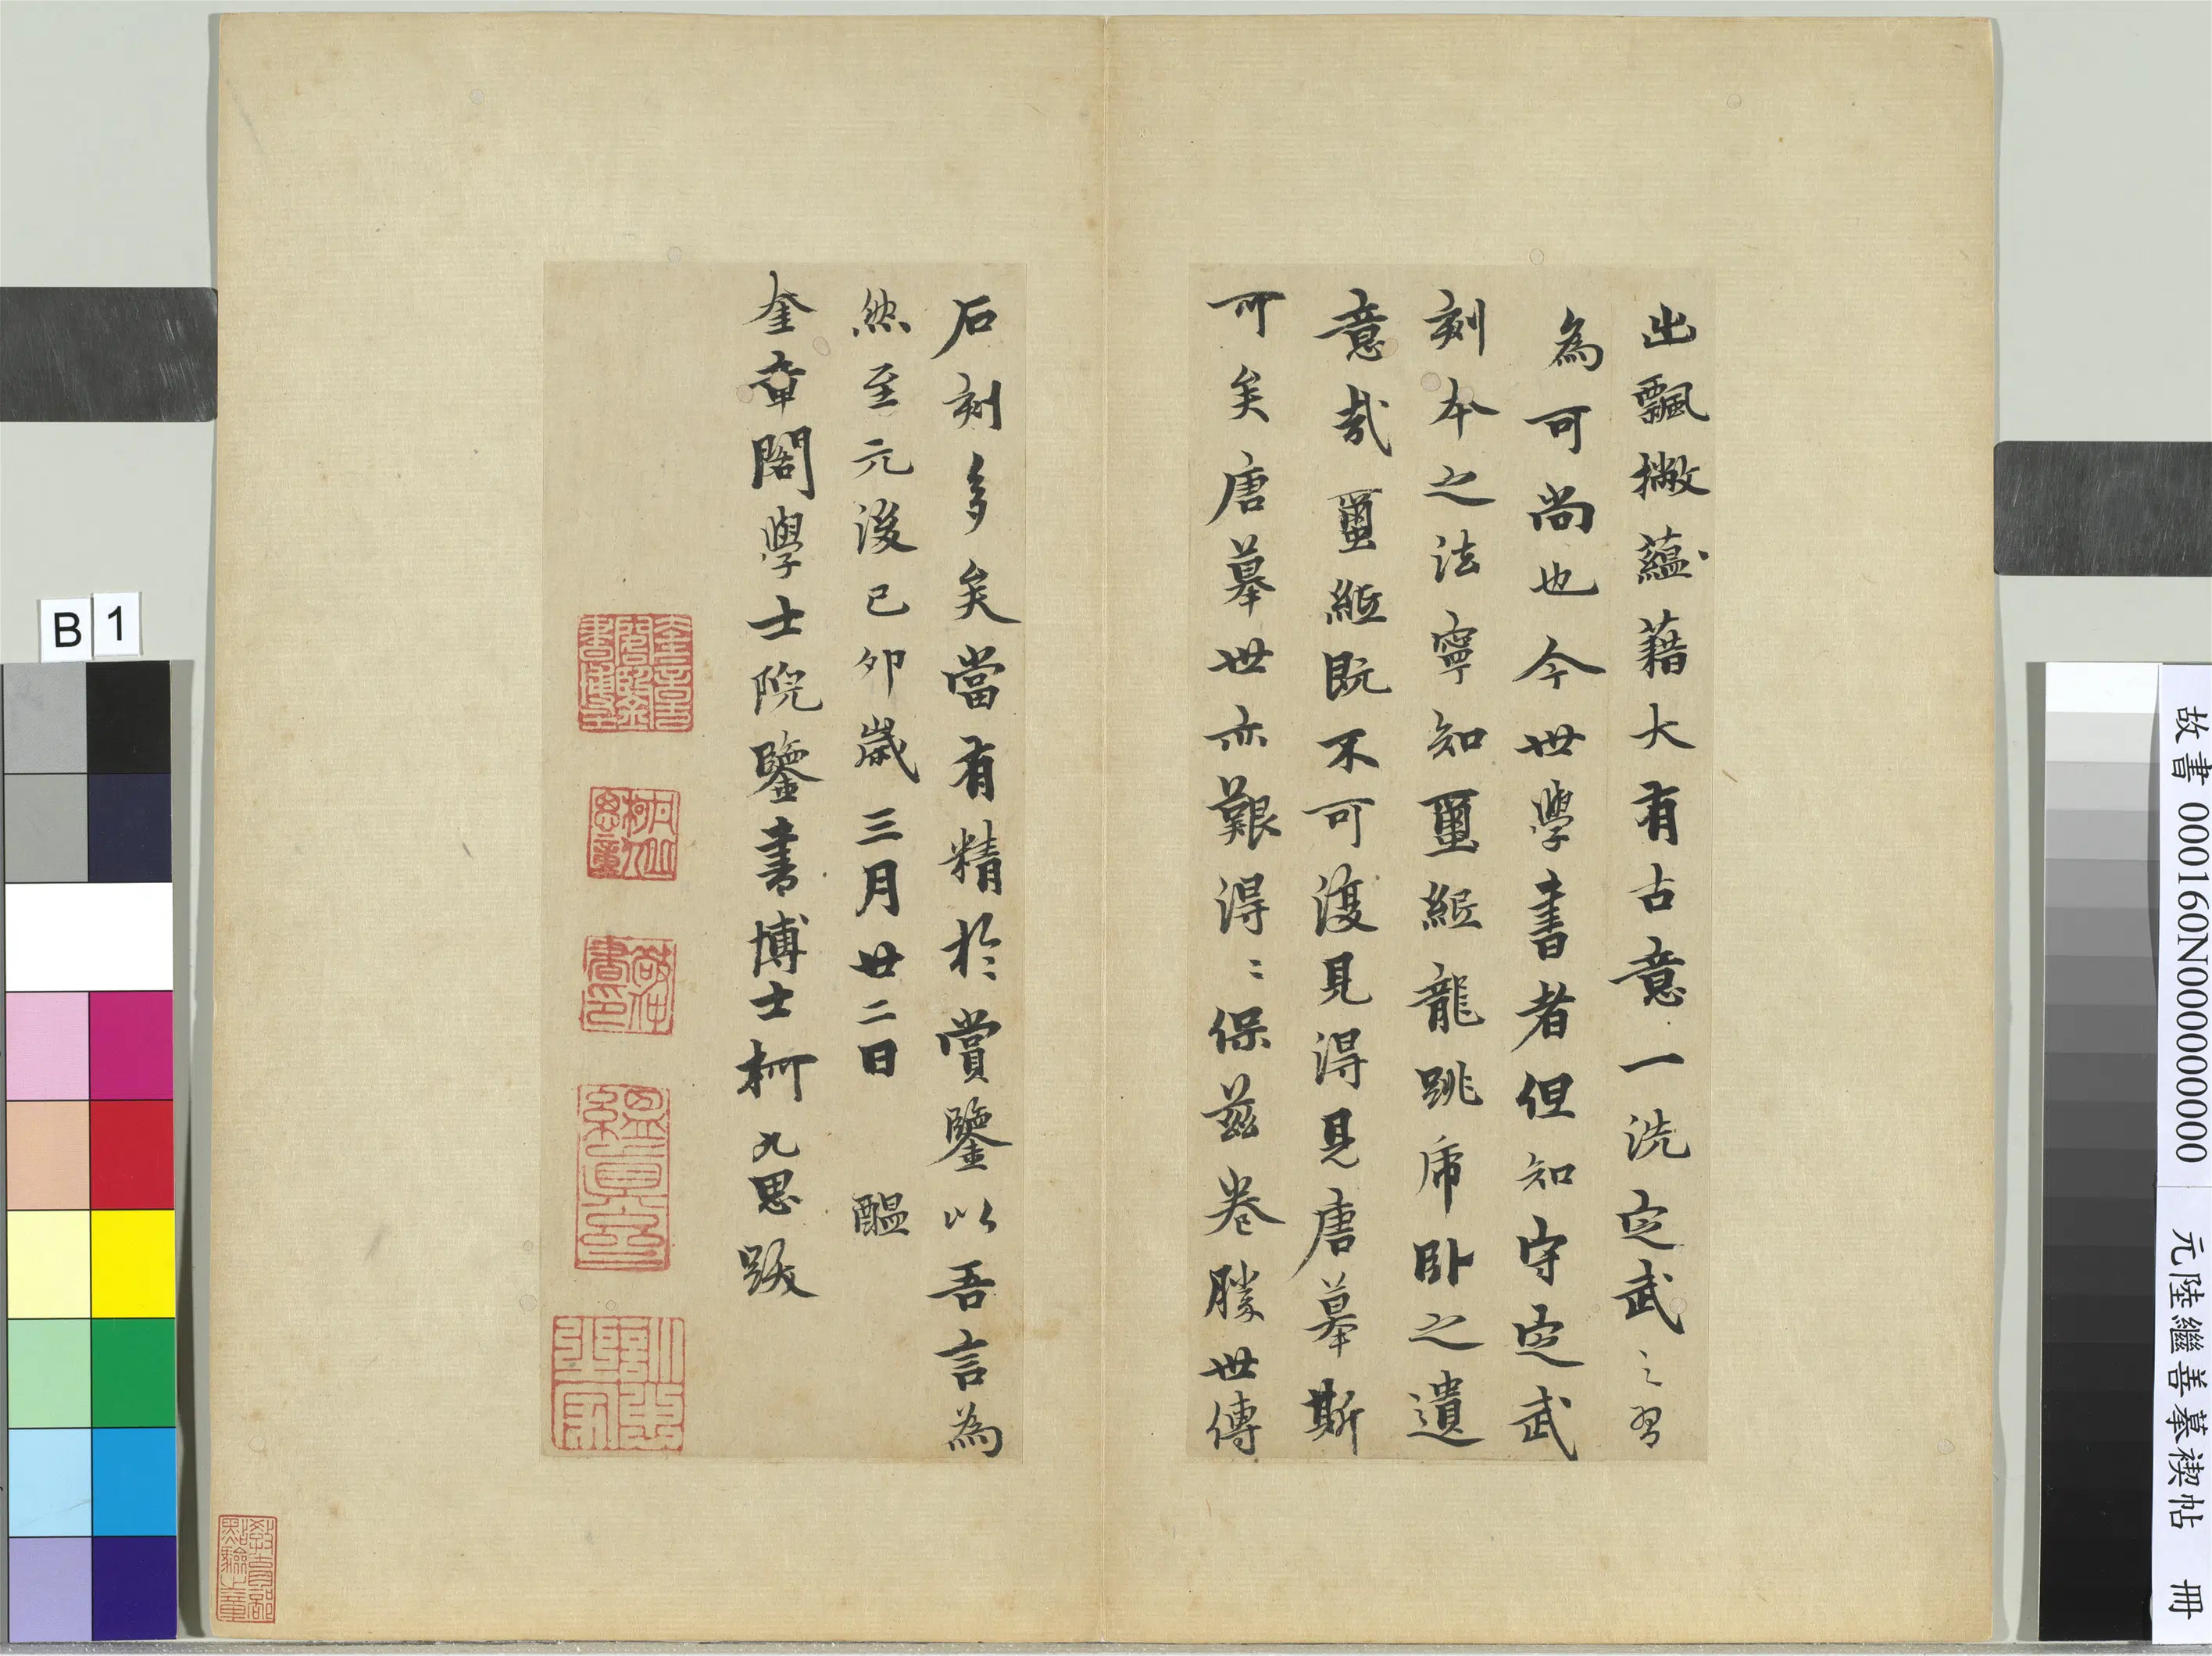 出飄撇蘊藉大有古意一洗定武之習
為可尚也今世學書者但知守定武
刻本之法寧知璽紙龍跳虎臥之遺
意哉璽紙既不可復見得見唐摹斯
可矣唐摹世亦艱得〻保茲卷勝世傳
石刻多矣當有精於賞鑒以吾言為
然至元後己卯歲三月廿二日 醖
奎章閣學士院鑒書博士柯九思跋
柯九思
敬仲書印
縕真齋
訓忠之家
教育部點驗之章
B 1
故書 000160N000000000
元陸繼善摹禊帖 冊